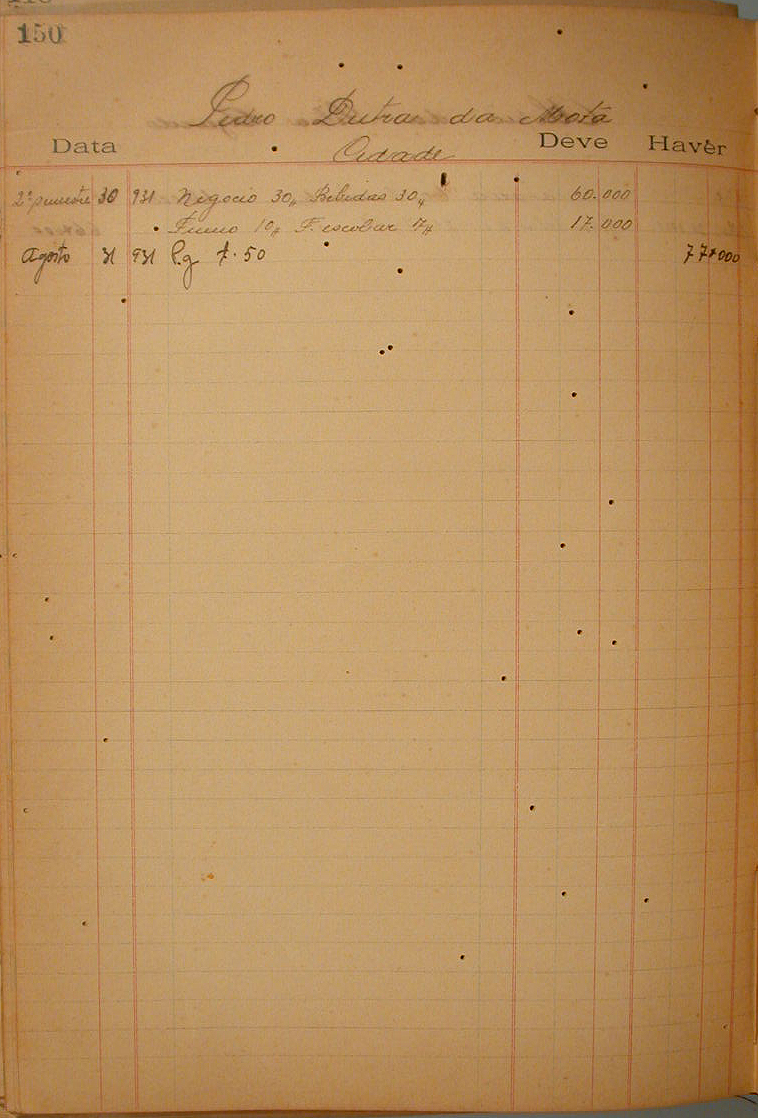 150
Pedro Dutra da Mota
Data Cidade Deve Haver
2º semestre 30 931 Negocio 30,, Bebidas 30,, 60.000
Fumo 10,, F. escolar 7,, 17.000
Agosto 31 931 P.g t. 50 77$000